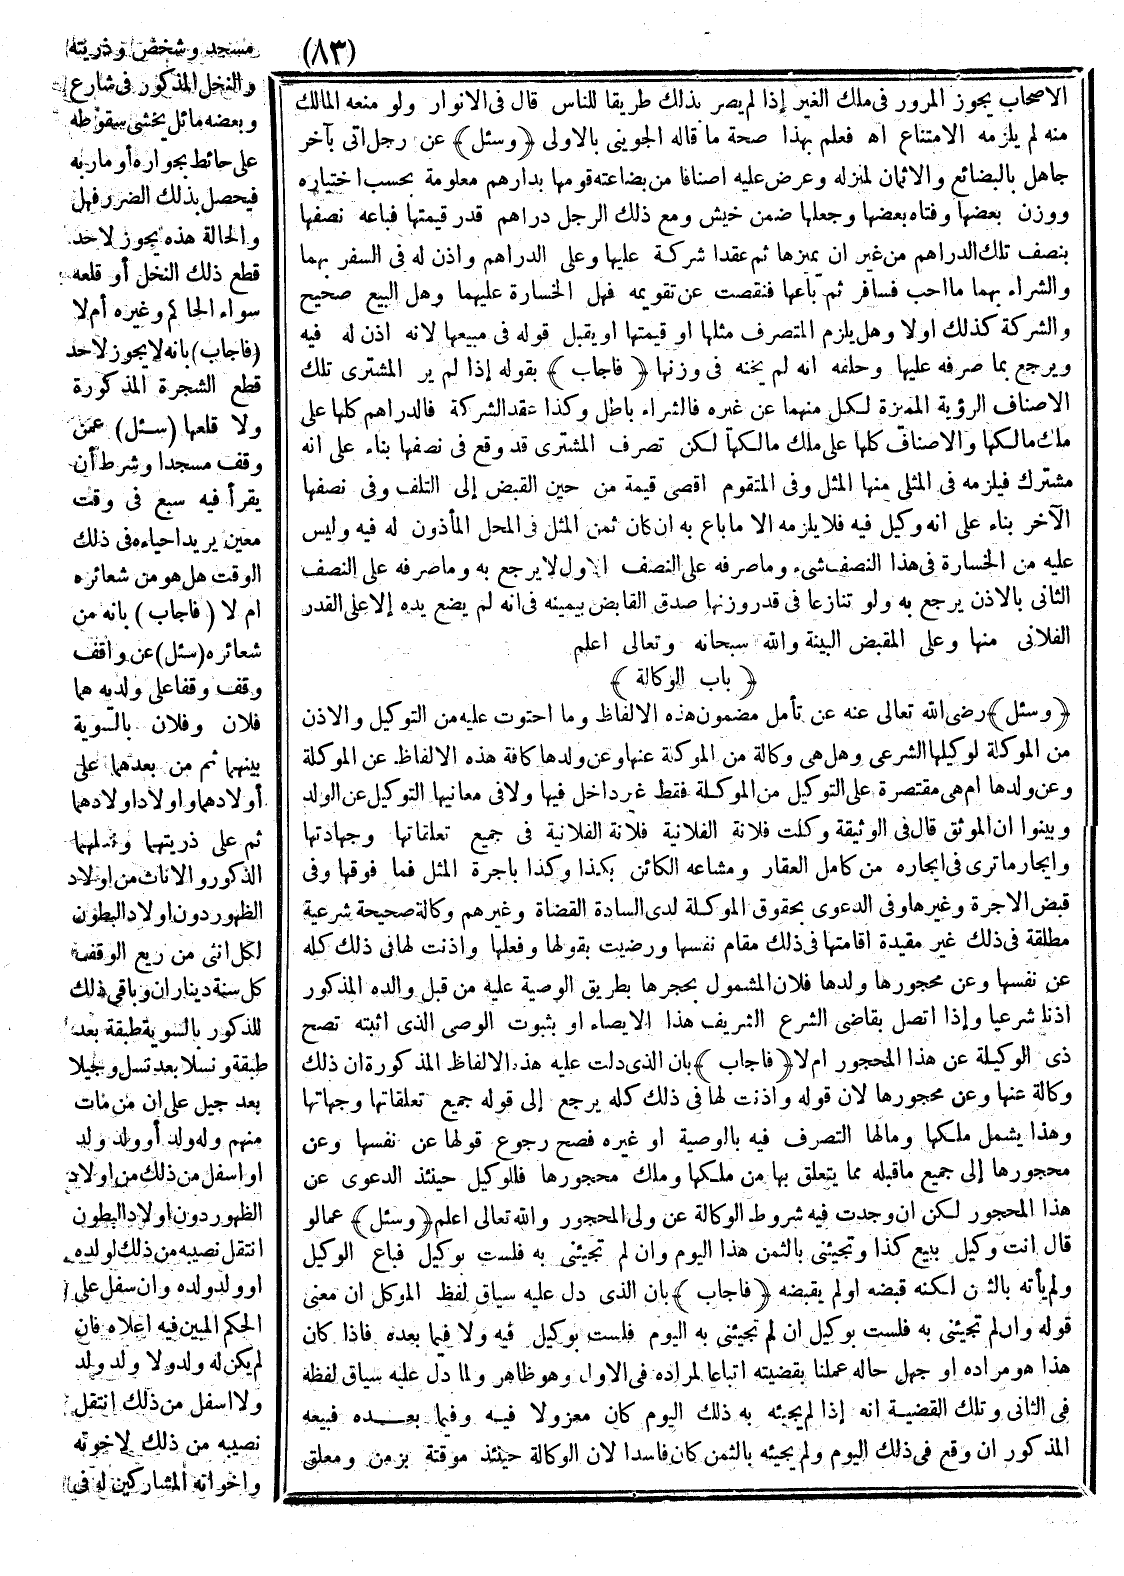 (٨٣)
الاصحاب يجوز المرور فى ملك الغير إذا لم يصر بذلك طريقا للناس قال فى الانوار ولو منعه المالك
منه لم يلزمه الامتناع اه فعلم بهذا صحة ما قاله الجوينى بالاولى ﴿وسئل﴾ عن رجل اتى بآخر
جاهل بالبضائع والاثمان لمنزله وعرض عليه اصنافا من بضاعته قومها بدارهم معلومة بحسب اختياره
ووزن بعضها وفتاه بعضها وجعلها ضمن خيش ومع ذلك الرجل دراهم قدر قيمتها فباعه نصفها
بنصف تلك الدراهم من غير ان يميزها ثم عقدا شركة عليها وعلى الدراهم واذن له فى السفر بهما
والشراء بهما ما احب فسافر ثم باعها فنقصت عن تقويمه فهل الخسارة عليهما وهل البيع صحيح
والشركة كذلك اولا وهل يلزم المتصرف مثلها او قيمتها او يقبل قوله فى مبيعها لانه اذن له فيه
ويرجع بما صرفه عليها وحلفه انه لم يخنه فى وزنها ﴿فاجاب﴾ بقوله إذا لم ير المشترى تلك
الاصناف الرؤية المميزة لكل منهما عن غيره فالشراء باطل وكذا عقد الشركة فالدراهم كلها على
ملك مالكها والاصناف كلها على ملك مالكها لكن تصرف المشترى قد وقع فى نصفها بناء على انه
مشترك فيلزمه فى المثلى منها المثل وفى المتقوم اقصى قيمة من حين القبض إلى التلف وفى نصفها
الآخر بناء على انه وكيل فيه فلا يلزمه الا ما باع به ان كان ثمن المثل فى المحل المأذون له فيه وليس
عليه من الخسارة فى هذا النصف شىء وما صرفه على النصف الاول لا يرجع به وما صرفه على النصف
الثانى بالاذن يرجع به ولو تنازعا فى قدر وزنها صدق القابض بيمينه فى انه لم يضع يده إلا على القدر
الفلانى منها وعلى المقبض البينة والله سبحانه وتعالى اعلم
﴿باب الوكالة﴾
﴿وسئل﴾ رضى الله تعالى عنه عن تأمل مضمون هذه الالفاظ وما احتوت عليه من التوكيل والاذن
من الموكلة لوكيلها الشرعى وهل هى وكالة من الموكلة عنها وعن ولدها كافة هذه الالفاظ عن الموكلة
وعن ولدها ام هى مقتصرة على التوكيل من الموكلة فقط غير داخل فيها ولا فى معانيها التوكيل عن الولد
وبينوا ان الموثق قال فى الوثيقة وكلت فلانة الفلانية فلانة الفلانية فى جميع تعلقاتها وجهادتها
وايجار ما ترى فى ايجاره من كامل العقار ومشاعه الكائن بكذا وكذا باجرة المثل فما فوقها وفى
قبض الاجرة وغيرها وفى الدعوى بحقوق الموكلة لدى السادة القضاة وغيرهم وكالة صحيحة شرعية
مطلقة فى ذلك غير مقيدة اقامتها فى ذلك مقام نفسها ورضيت بقولها وفعلها واذنت لها فى ذلك كله
عن نفسها وعن محجورها ولدها فلان المشمول بحجرها بطريق الوصية عليه من قبل والده المذكور
اذنا شرعيا وإذا اتصل بقاضى الشرع الشريف هذا الايصاء او بثبوت الوصى الذى اثبته تصح
ذى الوكيلة عن هذا المحجور ام لا ﴿فاجاب﴾ بان الذى دلت عليه هذه الالفاظ المذكورة ان ذلك
وكالة عنها وعن محجورها لان قوله واذنت لها فى ذلك كله يرجع إلى قوله جميع تعلقاتها وجهاتها
وهذا يشمل ملكها ومالها التصرف فيه بالوصية او غيره فصح رجوع قولها عن نفسها وعن
محجورها إلى جميع ماقبله مما يتعلق بها من ملكها وملك محجورها فللوكيل حينئذ الدعوى عن
هذا المحجور لكن ان وجدت فيه شروط الوكالة عن ولى المحجور والله تعالى اعلم ﴿وسئل﴾ عمالو
قال انت وكيل ببيع كذا وتجيئنى بالثمن هذا اليوم وان لم تجيئنى به فلست بوكيل فباع الوكيل
ولم يأته بالثمن لكنه قبضه اولم يقبضه ﴿فاجاب﴾ بان الذى دل عليه سياق لفظ الموكل ان معنى
قوله وان لم تجيئنى به فلست بوكيل ان لم تجيئنى به اليوم فلست بوكيل فيه ولا فيما بعده فاذا كان
هذا هو مراده او جهل حاله عملنا بقضيته اتباعا لمراده فى الاول وهو ظاهر ولما دل عليه سياق لفظه
فى الثانى وتلك القضية انه إذا لم يجيئه به ذلك اليوم كان معزولا فيه وفيما بعده فبيعه
المذكور ان وقع فى ذلك اليوم ولم يجيئه بالثمن كان فاسدا لان الوكالة حينئذ موقتة بزمن ومعلق
مسجد وشخص وذريته
والنخل المذكور فى شارع
وبعضه مائل يخشى سقوطه
على حائط بجواره أو مار به
فيحصل بذلك الضرر فهل
والحالة هذه يجوز لاحد
قطع ذلك النخل أو قلعه
سواء الحاكم وغيره أم لا
(فاجاب) بانه لا يجوز لاحد
قطع الشجرة المذكورة
ولا قلعها (سئل) عمن
وقف مسجدا وشرط أن
يقرأ فيه سبع فى وقت
معين يريد احياءه فى ذلك
الوقت هل هو من شعائره
ام لا (فاجاب) بانه من
شعائره (سئل) عن واقف
وقف وقفا على ولديه هما
فلان وفلان بالسوية
بينهما ثم من بعدهما على
أولادهما واولاد اولادهما
ثم على ذريتهما ونسلهما
الذكور والاناث من اولاد
الظهور دون اولاد البطون
لكل انثى من ريع الوقف
كل سنة ديناران وباقى ذلك
للذكور بالسوية طبقة بعد
طبقة ونسلا بعد نسل وجيلا
بعد جيل على ان من مات
منهم وله ولد أو ولد ولد
او اسفل من ذلك من اولاد
الظهور دون اولاد البطون
انتقل نصيبه من ذلك لولده
او ولد ولده وان سفل على
الحكم المبين فيه اعلاه فان
لم يكن له ولد ولا ولد ولد
ولا اسفل من ذلك انتقل
نصيبه من ذلك لاخوته
واخواته المشاركين له فى